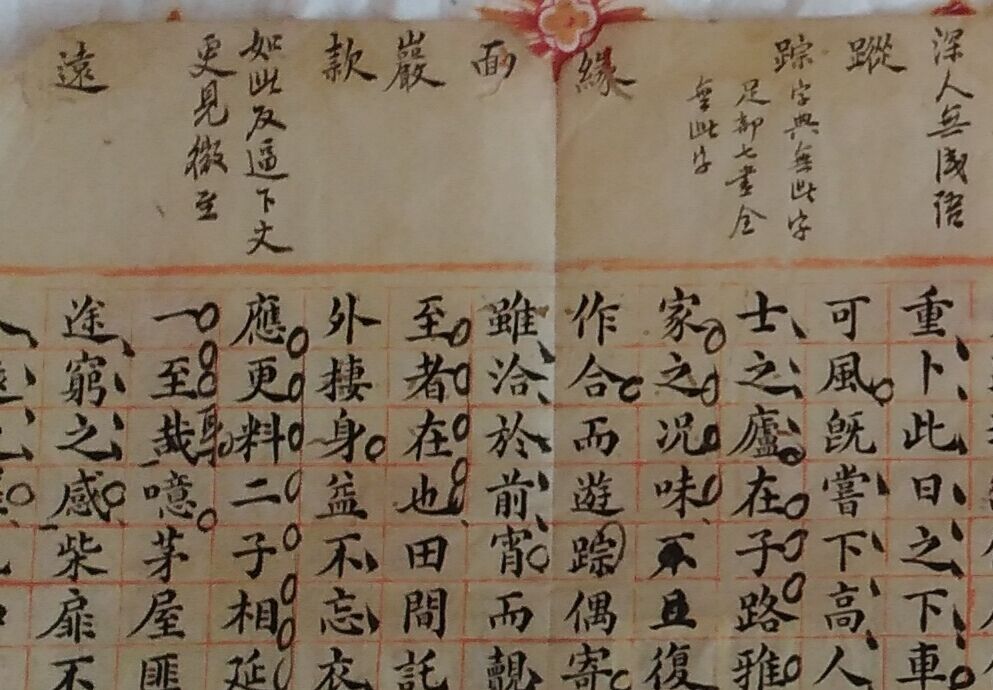 深人無淺語
蹤
踪字典無此字
足部七畫全
無此字
緣
面
巖
款
如此反逼下文
更見微至
遠
重卜此日之下車
可風既嘗下高人
士之廬在子路雅
家之況味不且復
作合而遊踪偶寄
雖洽於前宵而覿
至者在也田間託
外棲身益不忘衣
應更料二子相延
一至哉噫茅屋匪
途窮之感柴扉不